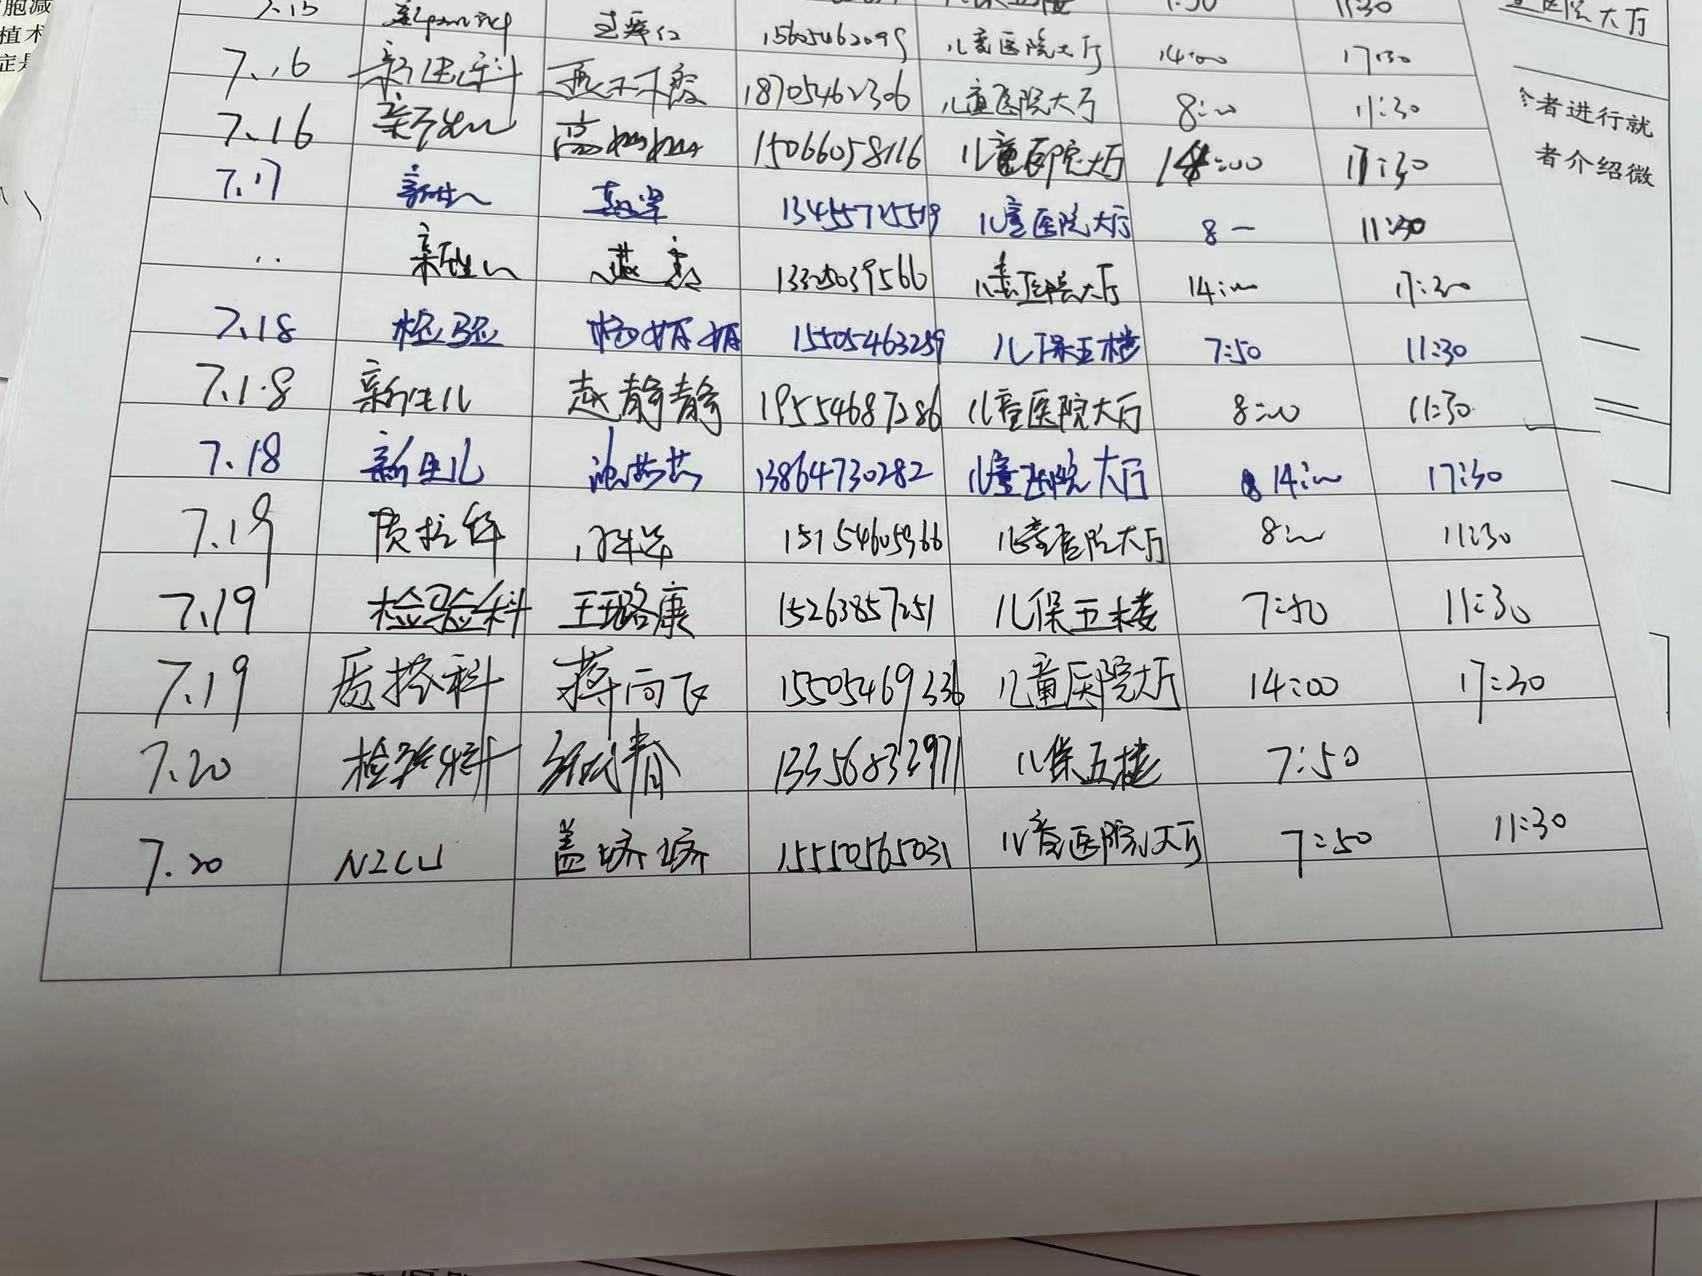 胞减
植术
症是
7.15 11:30
15605462099 儿童医院大厅 14:00 17:30
医院大厅
7.16 新生儿科 18705462306 儿童医院大厅 8:00 11:30
者进行就
7.16 新生儿 高姗姗 15066058116 儿童医院大厅 14:00 17:30
者介绍微
7.17 新生儿 13455725519 儿童医院大厅 8 — 11:30
.. 新生儿 儿童医院大厅 14:00 17:30
7.18 检验 杨娟娟 15505463259 儿保五楼 7:50 11:30
7.18 新生儿 赵静静 19554687286 儿童医院大厅 8:00 11:30
7.18 新生儿 13864730282 儿童医院大厅 14:00 17:30
7.19 质控科 儿童医院大厅 8:00 11:30
7.19 检验科 王璐康 15263857251 儿保五楼 7:50 11:30
7.19 质控科 蒋向飞 15505469336 儿童医院大厅 14:00 17:30
7.20 检验科 13356833971 儿保五楼 7:50
7.20 NICU 盖娇娇 15550565031 儿童医院大厅 7:50 11:30